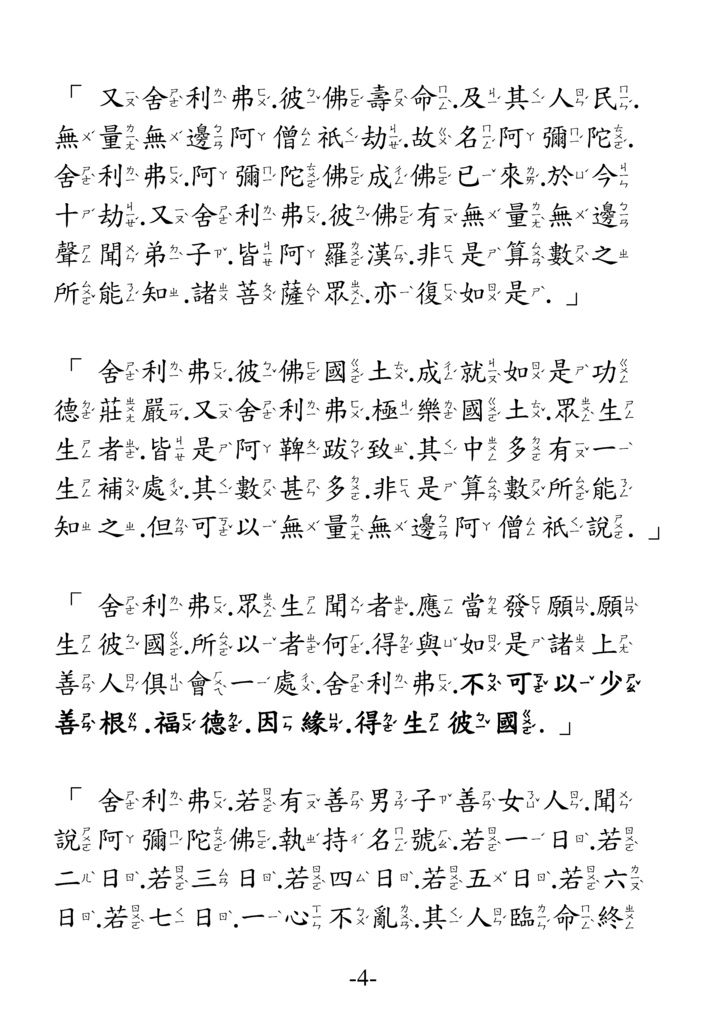 「 又舍利弗.彼佛壽命.及其人民.
無量無邊阿僧祇劫.故名阿彌陀.
舍利弗.阿彌陀佛成佛已來.於今
十劫.又舍利弗.彼佛有無量無邊
聲聞弟子.皆阿羅漢.非是算數之
所能知.諸菩薩眾.亦復如是. 」
「 舍利弗.彼佛國土.成就如是功
德莊嚴.又舍利弗.極樂國土.眾生
生者.皆是阿鞞跋致.其中多有一
生補處.其數甚多.非是算數所能
知之.但可以無量無邊阿僧祇說. 」
「 舍利弗.眾生聞者.應當發願.願
生彼國.所以者何.得與如是諸上
善人俱會一處.舍利弗.不可以少
善根.福德.因緣.得生彼國. 」
「 舍利弗.若有善男子善女人.聞
說阿彌陀佛.執持名號.若一日.若
二日.若三日.若四日.若五日.若六
日.若七日.一心不亂.其人臨命終
-4-